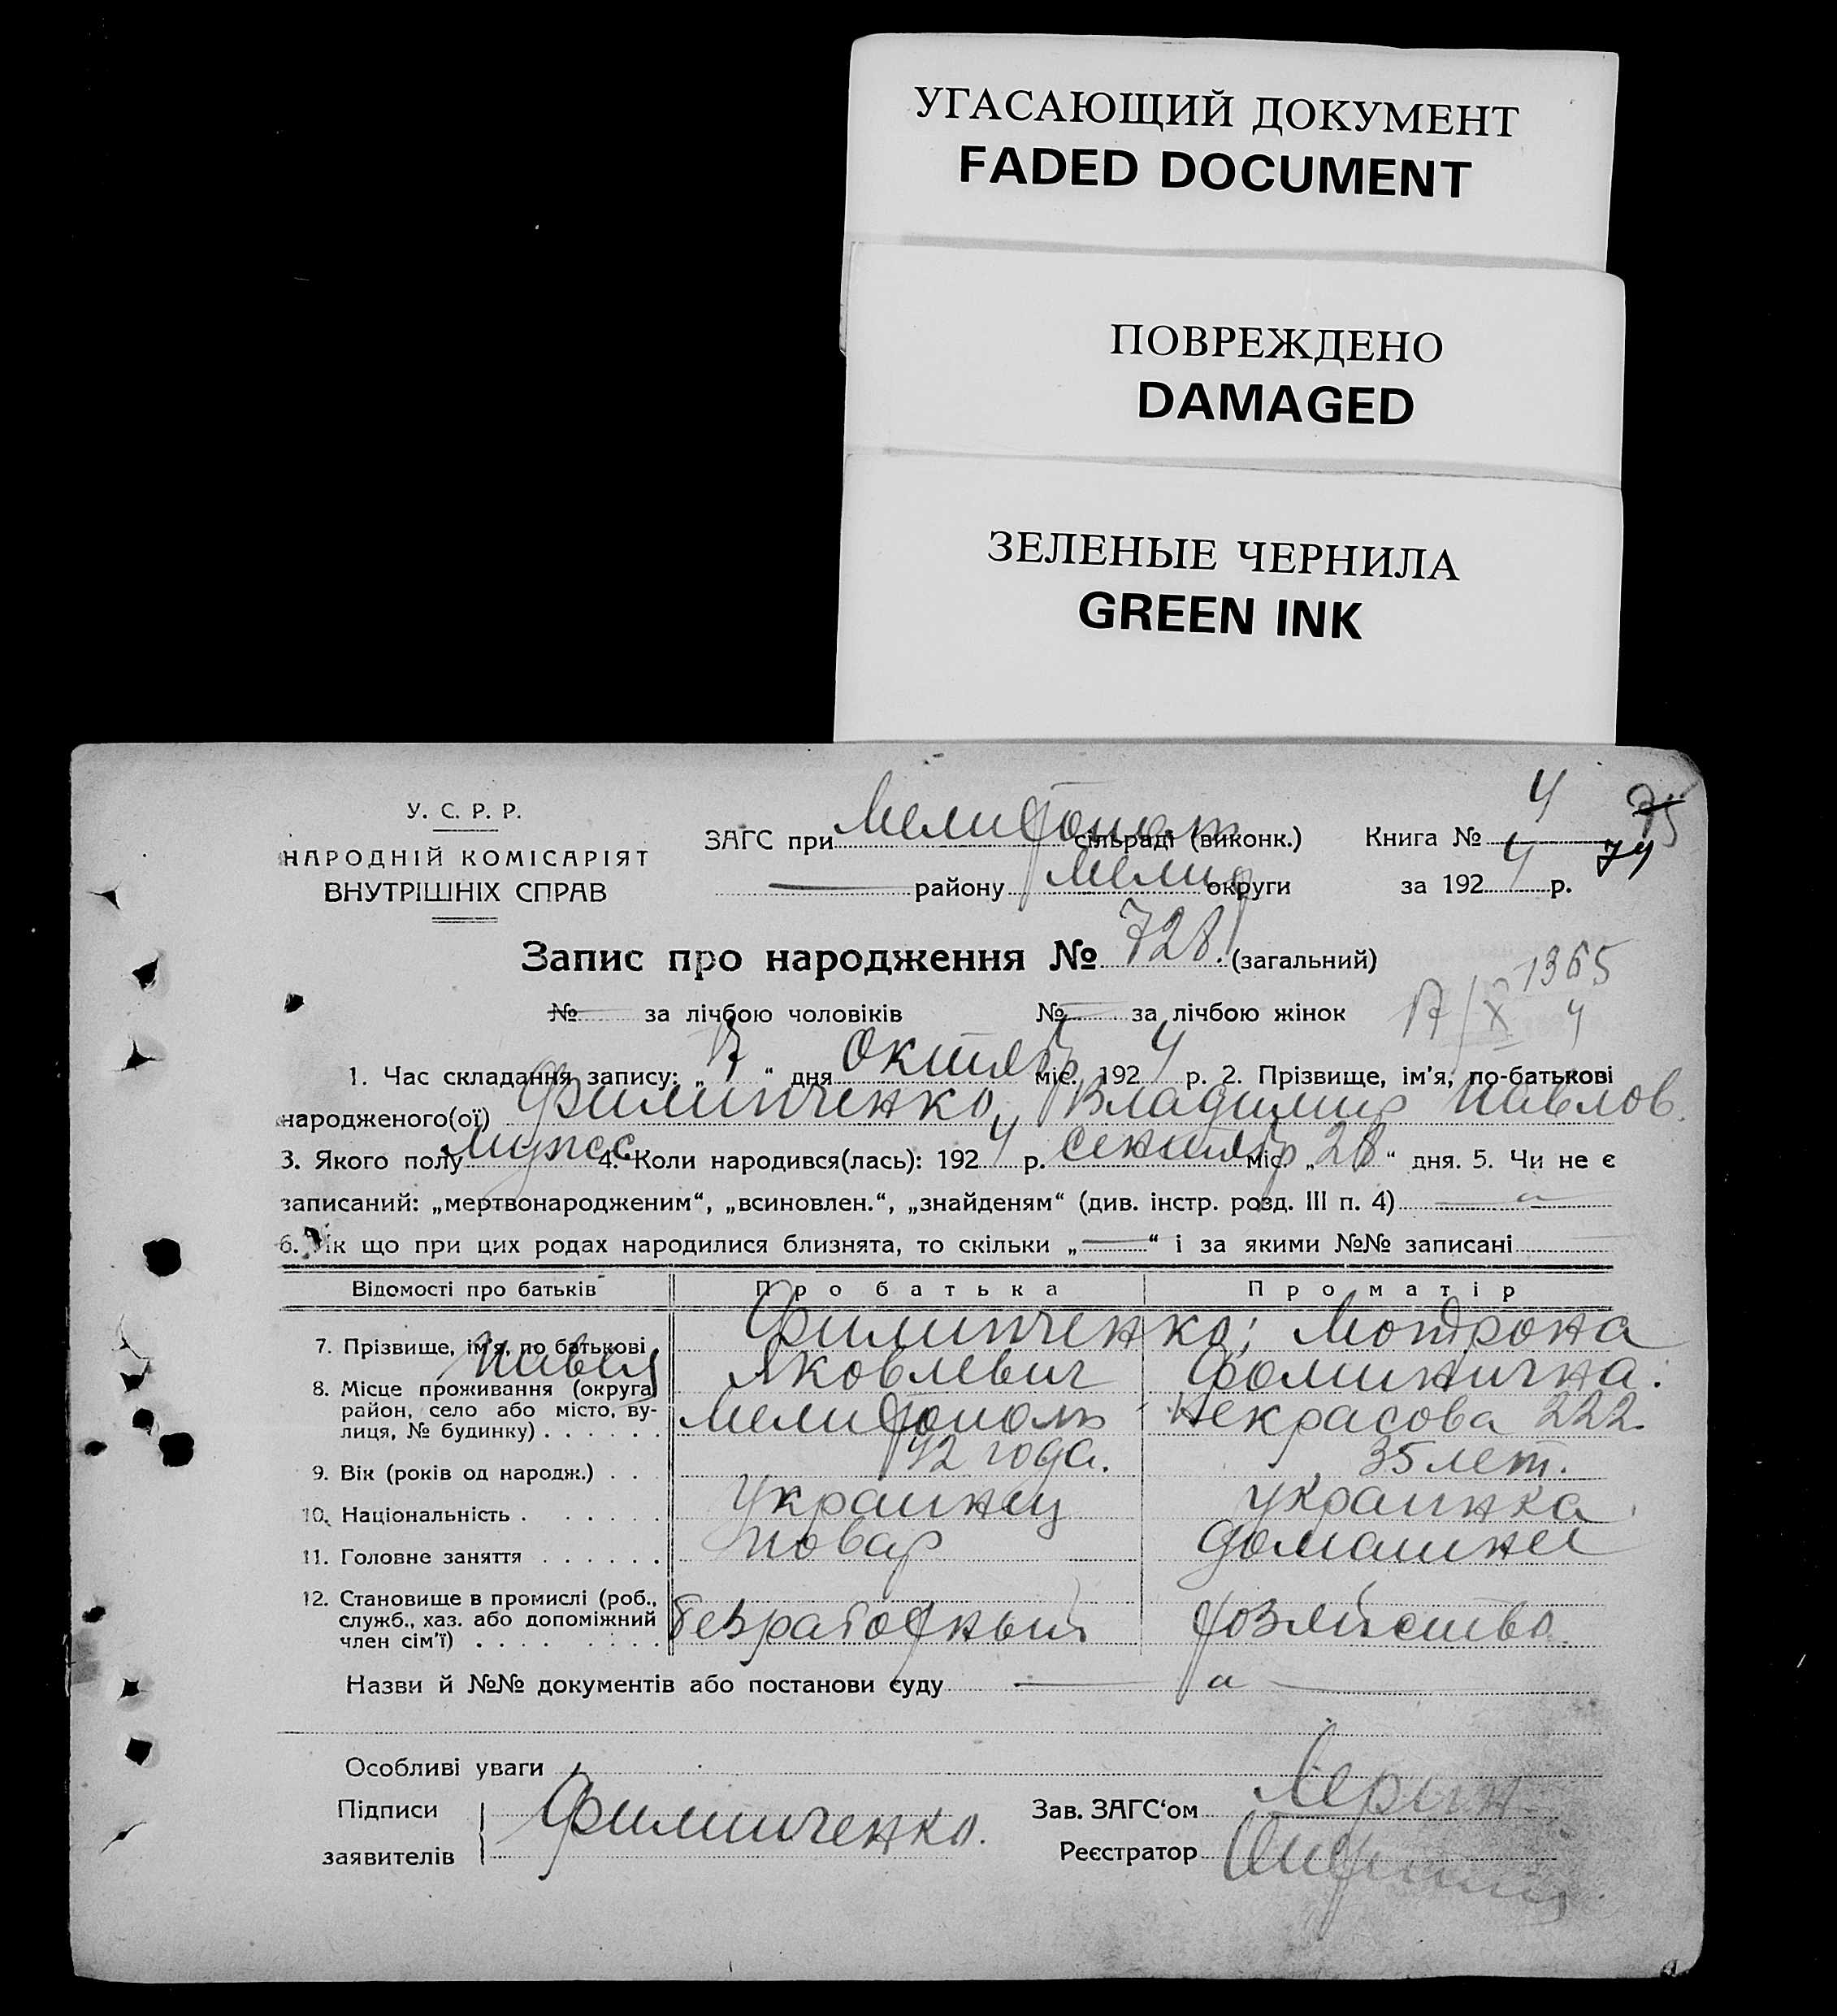 УГАСАЮЩИЙ ДОКУМЕНТ
FADED DOCUMENT
ПОВРЕЖДЕНО
DAMAGED
ЗЕЛЕНЫЕ ЧЕРНИЛА
GREEN INK
У. С. Р. Р.
НАРОДНІЙ КОМІСАРІЯТ
ВНУТРІШНІХ СПРАВ
ЗАГС при Мелитопол сільраді (виконк.) Книга № 4 75
— району Мелит округи за 1924 р. 74
Запис про народження № 728. (загальний)
1365
№ — за лічбою чоловіків № — за лічбою жінок 17/X 4
1. Час складання запису: „17“ дня Октябр міс. 1924 р. 2. Прізвище, ім'я, по-батькові
народженого(ої) Филипченко, Владимир Павлов.
3. Якого полу мужс. 4. Коли народився(лась): 1924 р. сентябр міс. „28“ дня. 5. Чи не є
записаний: „мертвонародженим“, „всиновлен.“, „знайденям“ (див. інстр. розд. III п. 4) — „ —
6. Як що при цих родах народилися близнята, то скільки „—“ і за якими №№ записані
Відомості про батьків Про батька Про матір
7. Прізвище, ім'я, по батькові Филипченко; Мотрона
Павел Яковлевич Фоминична.
8. Місце проживання (округа
район, село або місто, ву-
лиця, № будинку) . . . . . . Мелитополь Некрасова 222.
9. Вік (років од народж.) . . 42 года. 35 лет.
10. Національність . . . . . . украинец украинка
11. Головне заняття . . . . . . повар домашнее
12. Становище в промислі (роб.,
служб., хаз. або допоміжний
член сім'ї) . . . . . . . . безработный хозяйство
Назви й №№ документів або постанови суду — „ —
Особливі уваги
Підписи Филипченко. Зав. ЗАГС'ом
заявителів Реєстратор